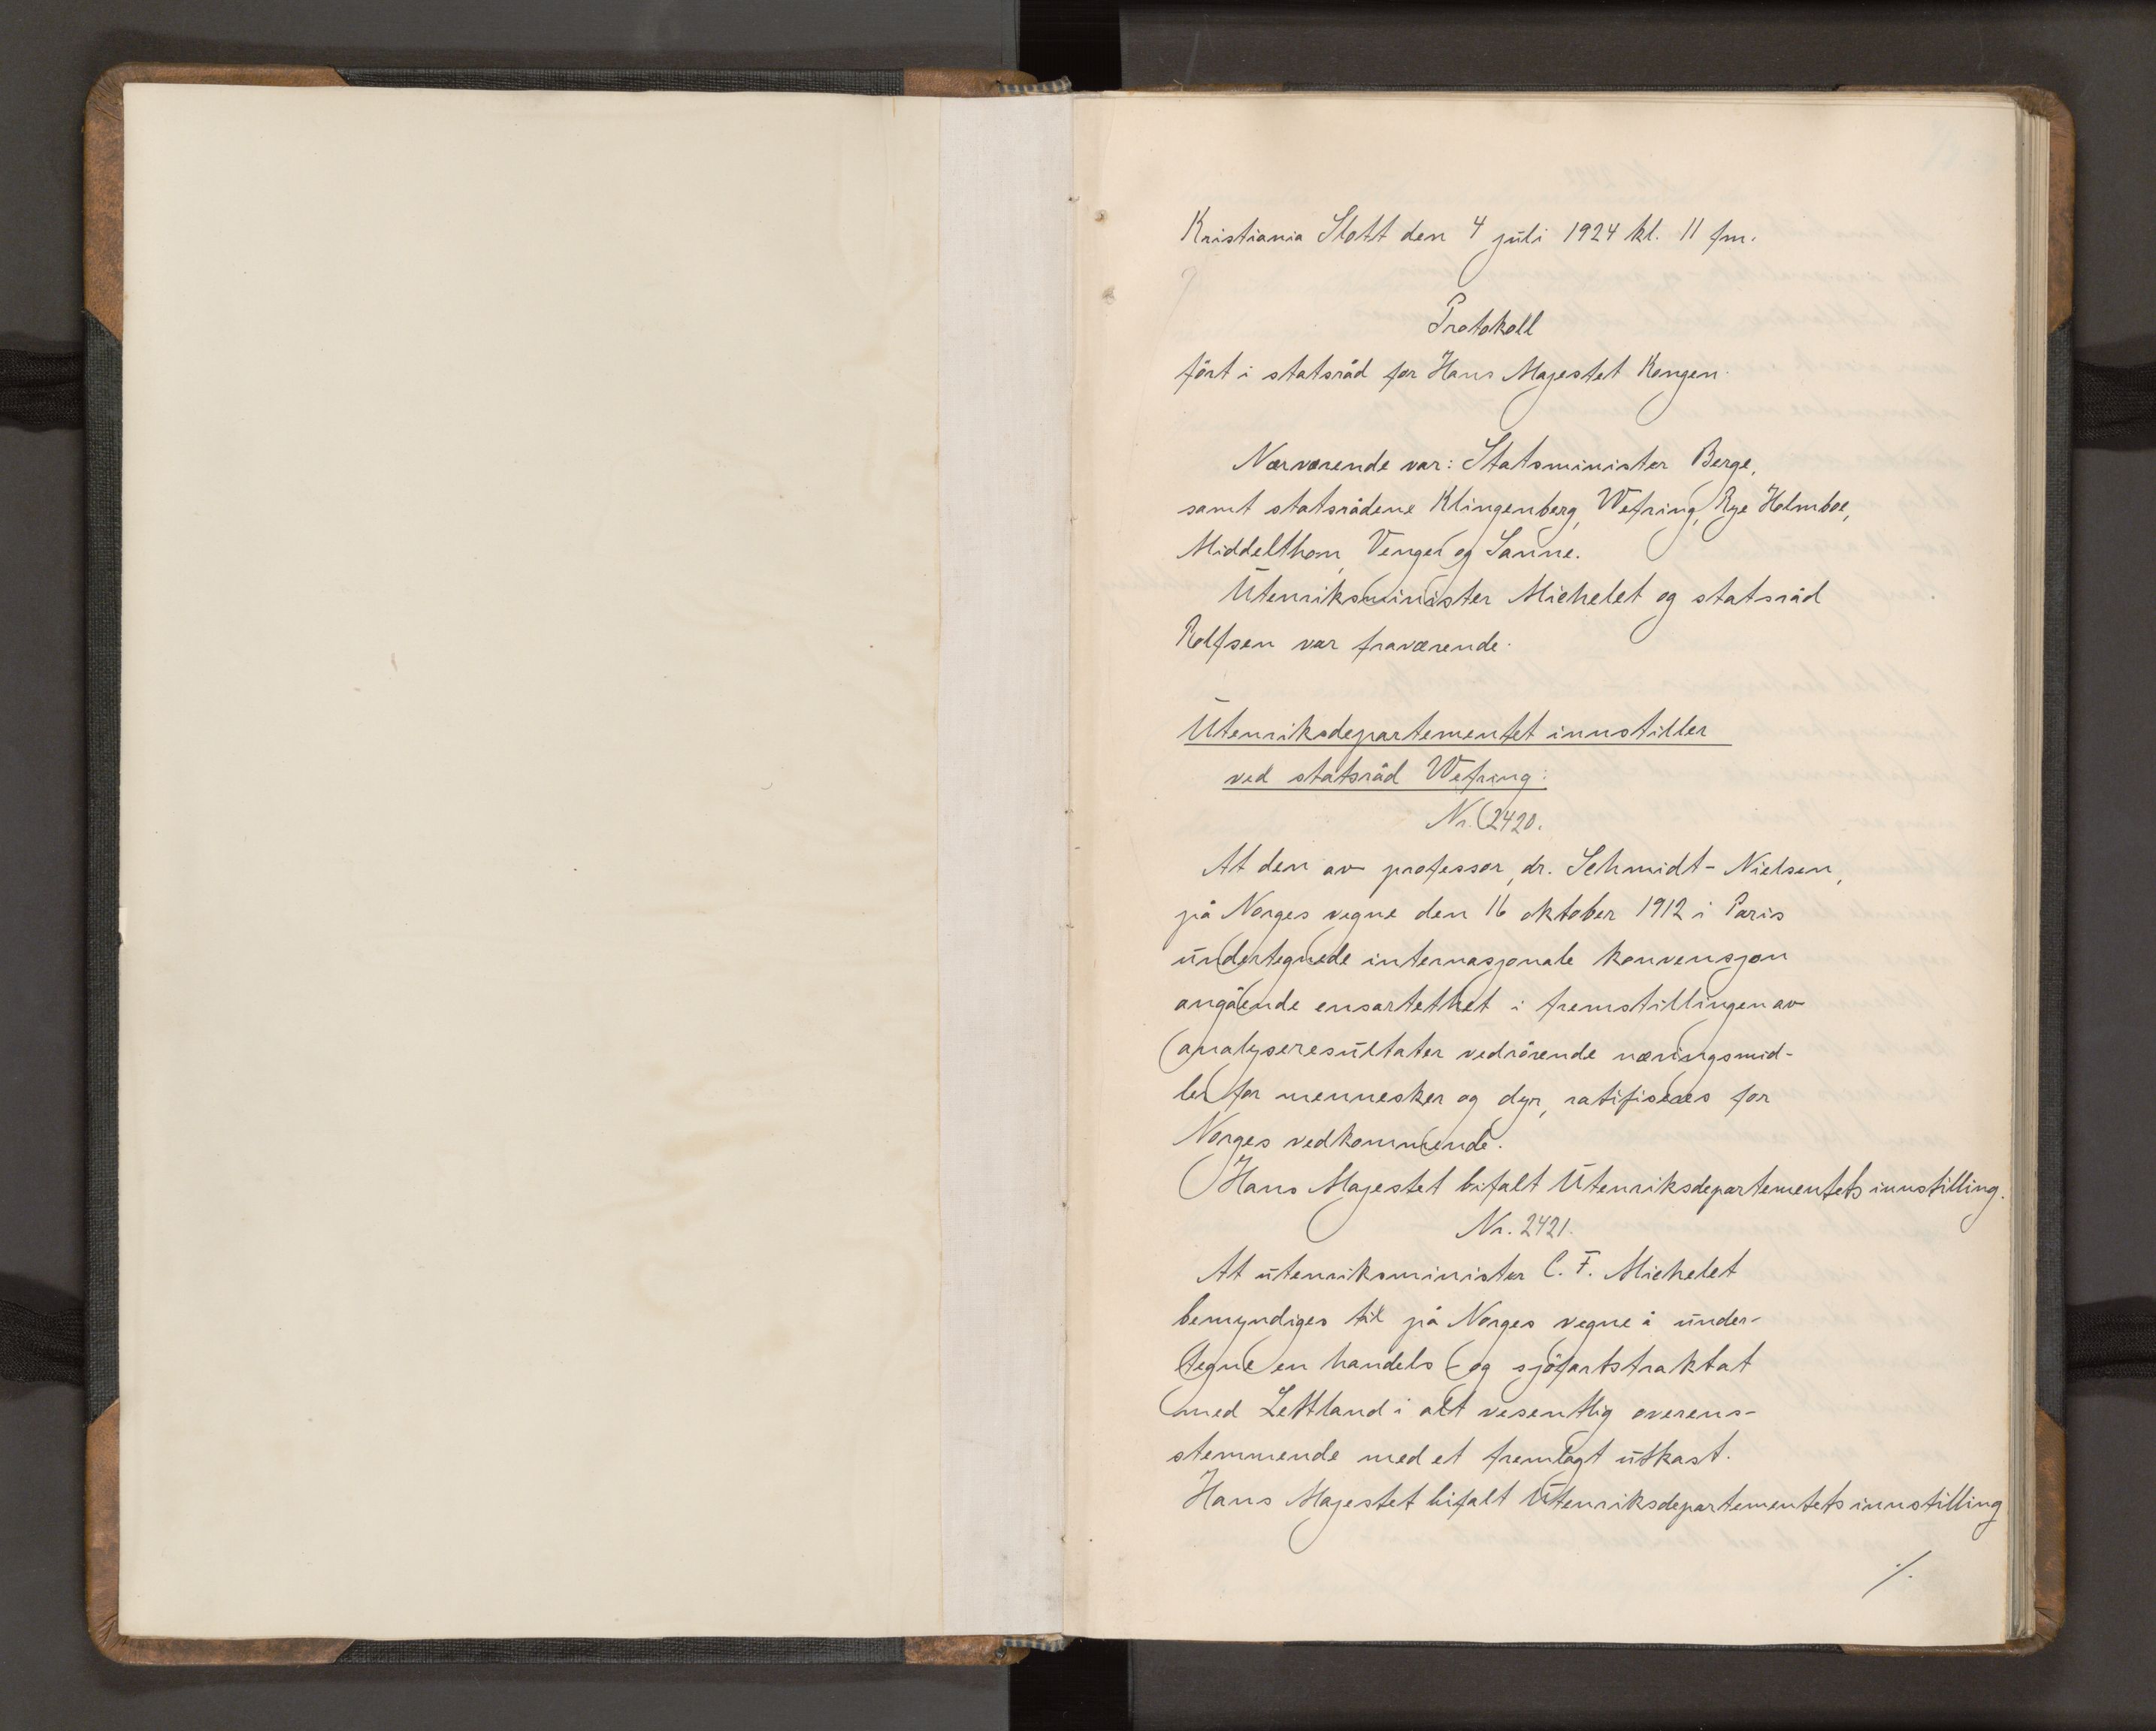 Kristiania Slott den 4 juli 1924 kl. 11 fm.
Protokoll
fört i statsråd for Hans Majestet Kongen.
Nærværende var: Statsminister Berge,
samt statsrådene Klingenberg, Wefring, Rye Holmboe,
Middelthon, Venger og Sanne.
Utenriksminister Michelet og statsråd
Rolfsen var fraværende.
Utenriksdepartementet innstiller
ved statsråd Wefring:
Nr. 2420.
At den av professor, dr. Schmidt-Nielsen,
på Norges vegne den 16 oktober 1912 i Paris
undertegnede internasjonale konvensjon
angående ensartethet i fremstillingen av
analyseresultater vedrörende næringsmid-
ler for mennesker og dyr, ratifiseres for
Norges vedkommende.
Hans Majestet bifalt Utenriksdepartementets innstilling.
Nr. 2421.
At utenriksminister C. F. Michelet
bemyndiges til på Norges vegne å under-
tegne en handels og sjöfartstraktat
med Lettland i alt vesentlig overens-
stemmende med et fremlagt utkast.
Hans Majestet bifalt Utenriksdepartementets innstilling
./.